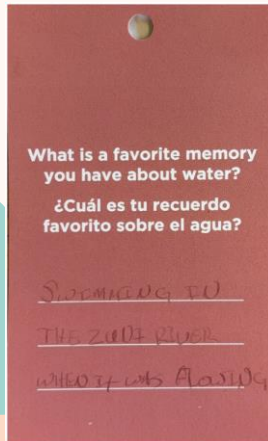 What is a favorite memory
you have about water?
¿Cuál es tu recuerdo
favorito sobre el agua?
SWIMMING IN
THE ZUNI RIVER
WHEN IT WAS FLOWING